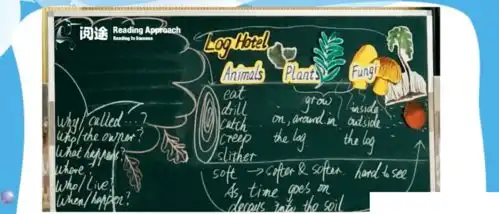 阅途 Reading Approach
Reading to Success
Log Hotel
Animals Plants Fungi
eat
drill
catch
creep
slither
grow
on, around, in
the log
inside
outside
the log
Why / called ...?
Who / the owner?
What happens?
Where
Who / live?
When / happen?
soft → softer & softer hard to see
As time goes on
decays into the soil